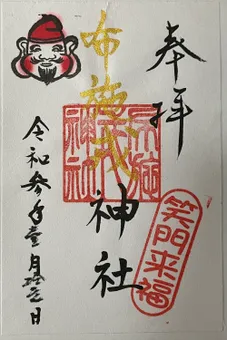 奉拝
笑門来福
布施戎神社
令和参年壹月日